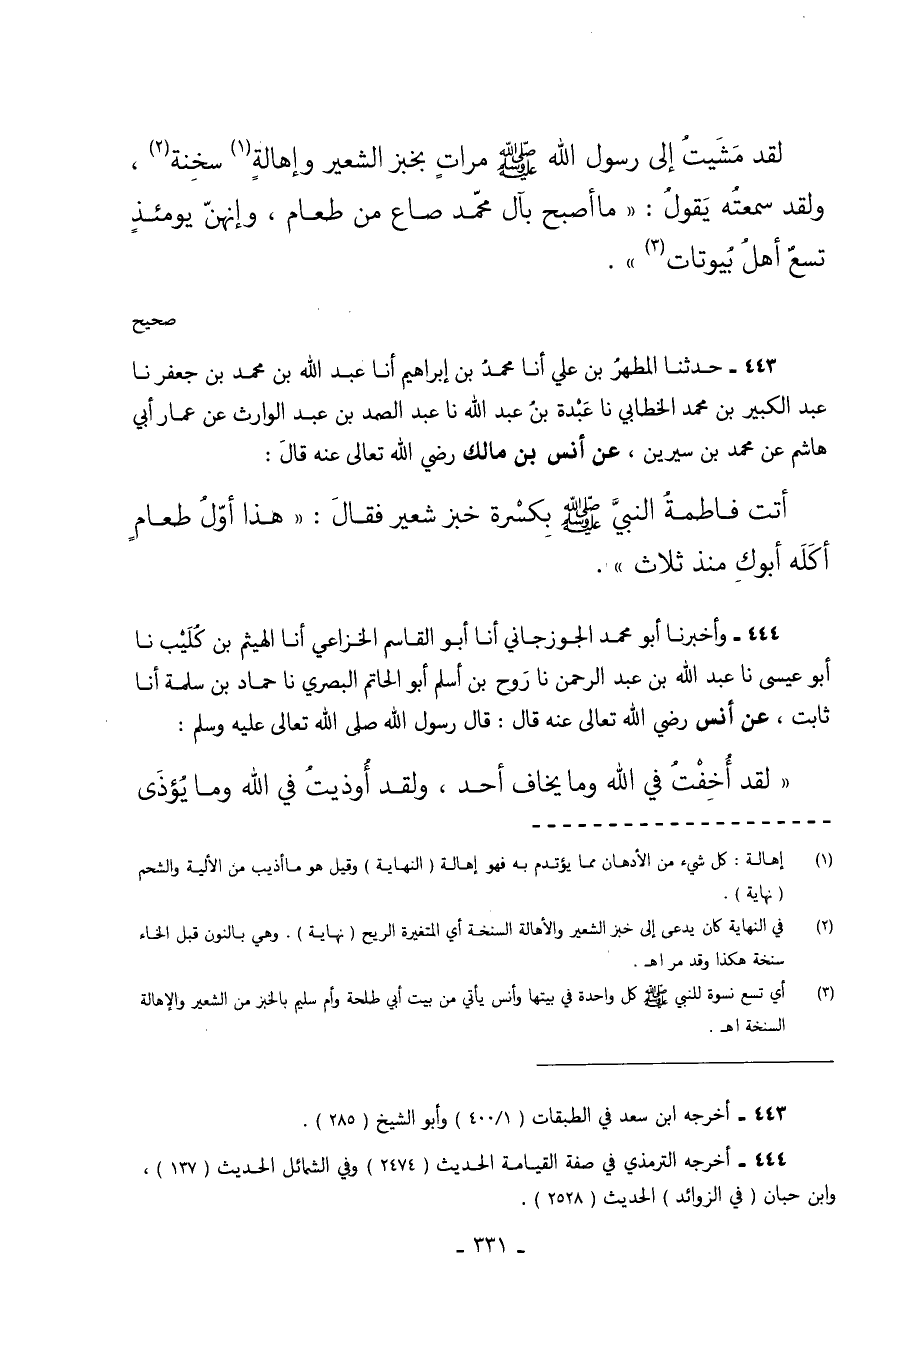 لقد مَشَيتُ إلى رسول الله ﷺ مراتٍ بخبز الشعير وإهالةٍ(١) سخنِة(٢) ،
ولقد سمعتُه يَقولُ : « ماأصبح بآل محمّد صاع من طعام ، وإنهنّ يومئذٍ
تسعٌ أهلُ بُيوتات(٣) » .
صحيح
٤٤٣ ـ حدثنا المطهرُ بن علي أنا محمدُ بن إبراهيم أنا عبد الله بن محمد بن جعفر نا
عبد الكبير بن محمد الخطابي نا عَبْدة بنُ عبد الله نا عبد الصمد بن عبد الوارث عن عمار أبي
هاشم عن محمد بن سيرين ، عن أنس بن مالك رضي الله تعالى عنه قالَ :
أتت فاطمةُ النبيَّ ﷺ بِكسْرة خبز شعير فقالَ : « هذا أوّلُ طعامٍ
أكَلَه أبوكِ منذ ثلاث » .
٤٤٤ ـ وأخبرنا أبو محمد الجوزجاني أنا أبو القاسم الخزاعي أنا الهيثم بن كُلَيْب نا
أبو عيسى نا عبد الله بن عبد الرحمن نا رَوح بن أسلم أبو الحاتم البصري نا حماد بن سلمة أنا
ثابت ، عن أنس رضي الله تعالى عنه قال : قال رسول الله صلى الله تعالى عليه وسلم :
« لقد أُخِفْتُ في الله وما يخاف أحد ، ولقد أُوذيتُ في الله وما يُؤذَى
(١) إهالة : كل شيء من الأدهان مما يؤتدم به فهو إهالة ( النهاية ) وقيل هو ماأذيب من الألية والشحم
( نهاية ) .
(٢) في النهاية كان يدعى إلى خبز الشعير والأهالة السنخة أي المتغيرة الريح ( نهاية ) . وهي بالنون قبل الخاء
سنخة هكذا وقد مر اهـ .
(٣) أي تسع نسوة للنبي ﷺ كل واحدة في بيتها وأنس يأتي من بيت أبي طلحة وأم سليم بالخبز من الشعير والإهالة
السنخة اهـ .
٤٤٣ ـ أخرجه ابن سعد في الطبقات ( ٤٠٠/١ ) وأبو الشيخ ( ٢٨٥ ) .
٤٤٤ ـ أخرجه الترمذي في صفة القيامة الحديث ( ٢٤٧٤ ) وفي الشمائل الحديث ( ١٣٧ ) ،
وابن حبان ( في الزوائد ) الحديث ( ٢٥٢٨ ) .
ـ ٣٣١ ـ